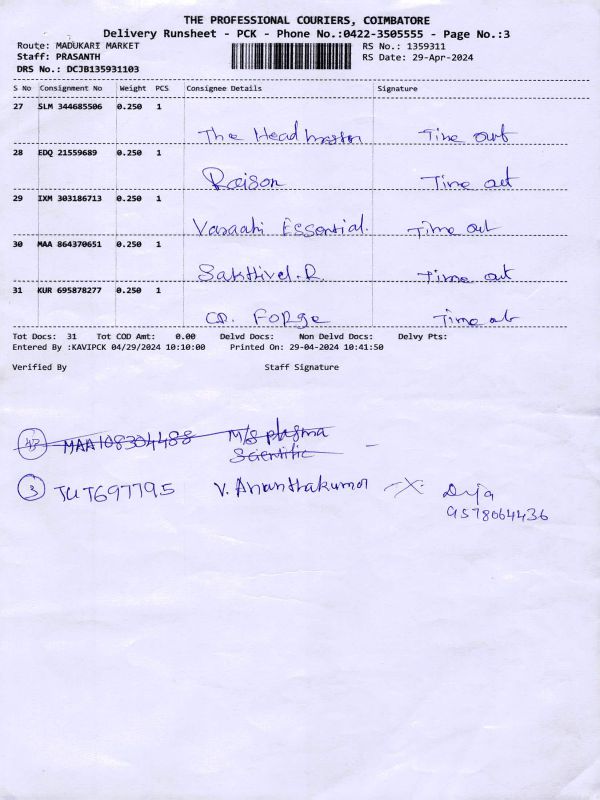 THE PROFESSIONAL COURIERS, COIMBATORE
Delivery Runsheet - PCK - Phone No.:0422-3505555 - Page No.:3
Route: MADUKARI MARKET RS No.: 1359311
Staff: PRASANTH RS Date: 29-Apr-2024
DRS No.: DCJB135931103
S No Consignment No Weight PCS Consignee Details Signature
27 SLM 344685506 0.250 1
The Head Time out
28 EDQ 21559689 0.250 1
Roison Time out
29 IXM 303186713 0.250 1
Vasaahi Essential. Time out
30 MAA 864370651 0.250 1
Sakthivel.R Time out
31 KUR 695878277 0.250 1
CD. FORge Time
Tot Docs: 31 Tot COD Amt: 0.00 Delvd Docs: Non Delvd Docs: Delvy Pts:
Entered By :KAVIPCK 04/29/2024 10:10:00 Printed On: 29-04-2024 10:41:50
Verified By Staff Signature
MAA108304488 M/S plasma
Scientific
3 TUT697795 V. Ananthakumar X
9578064436